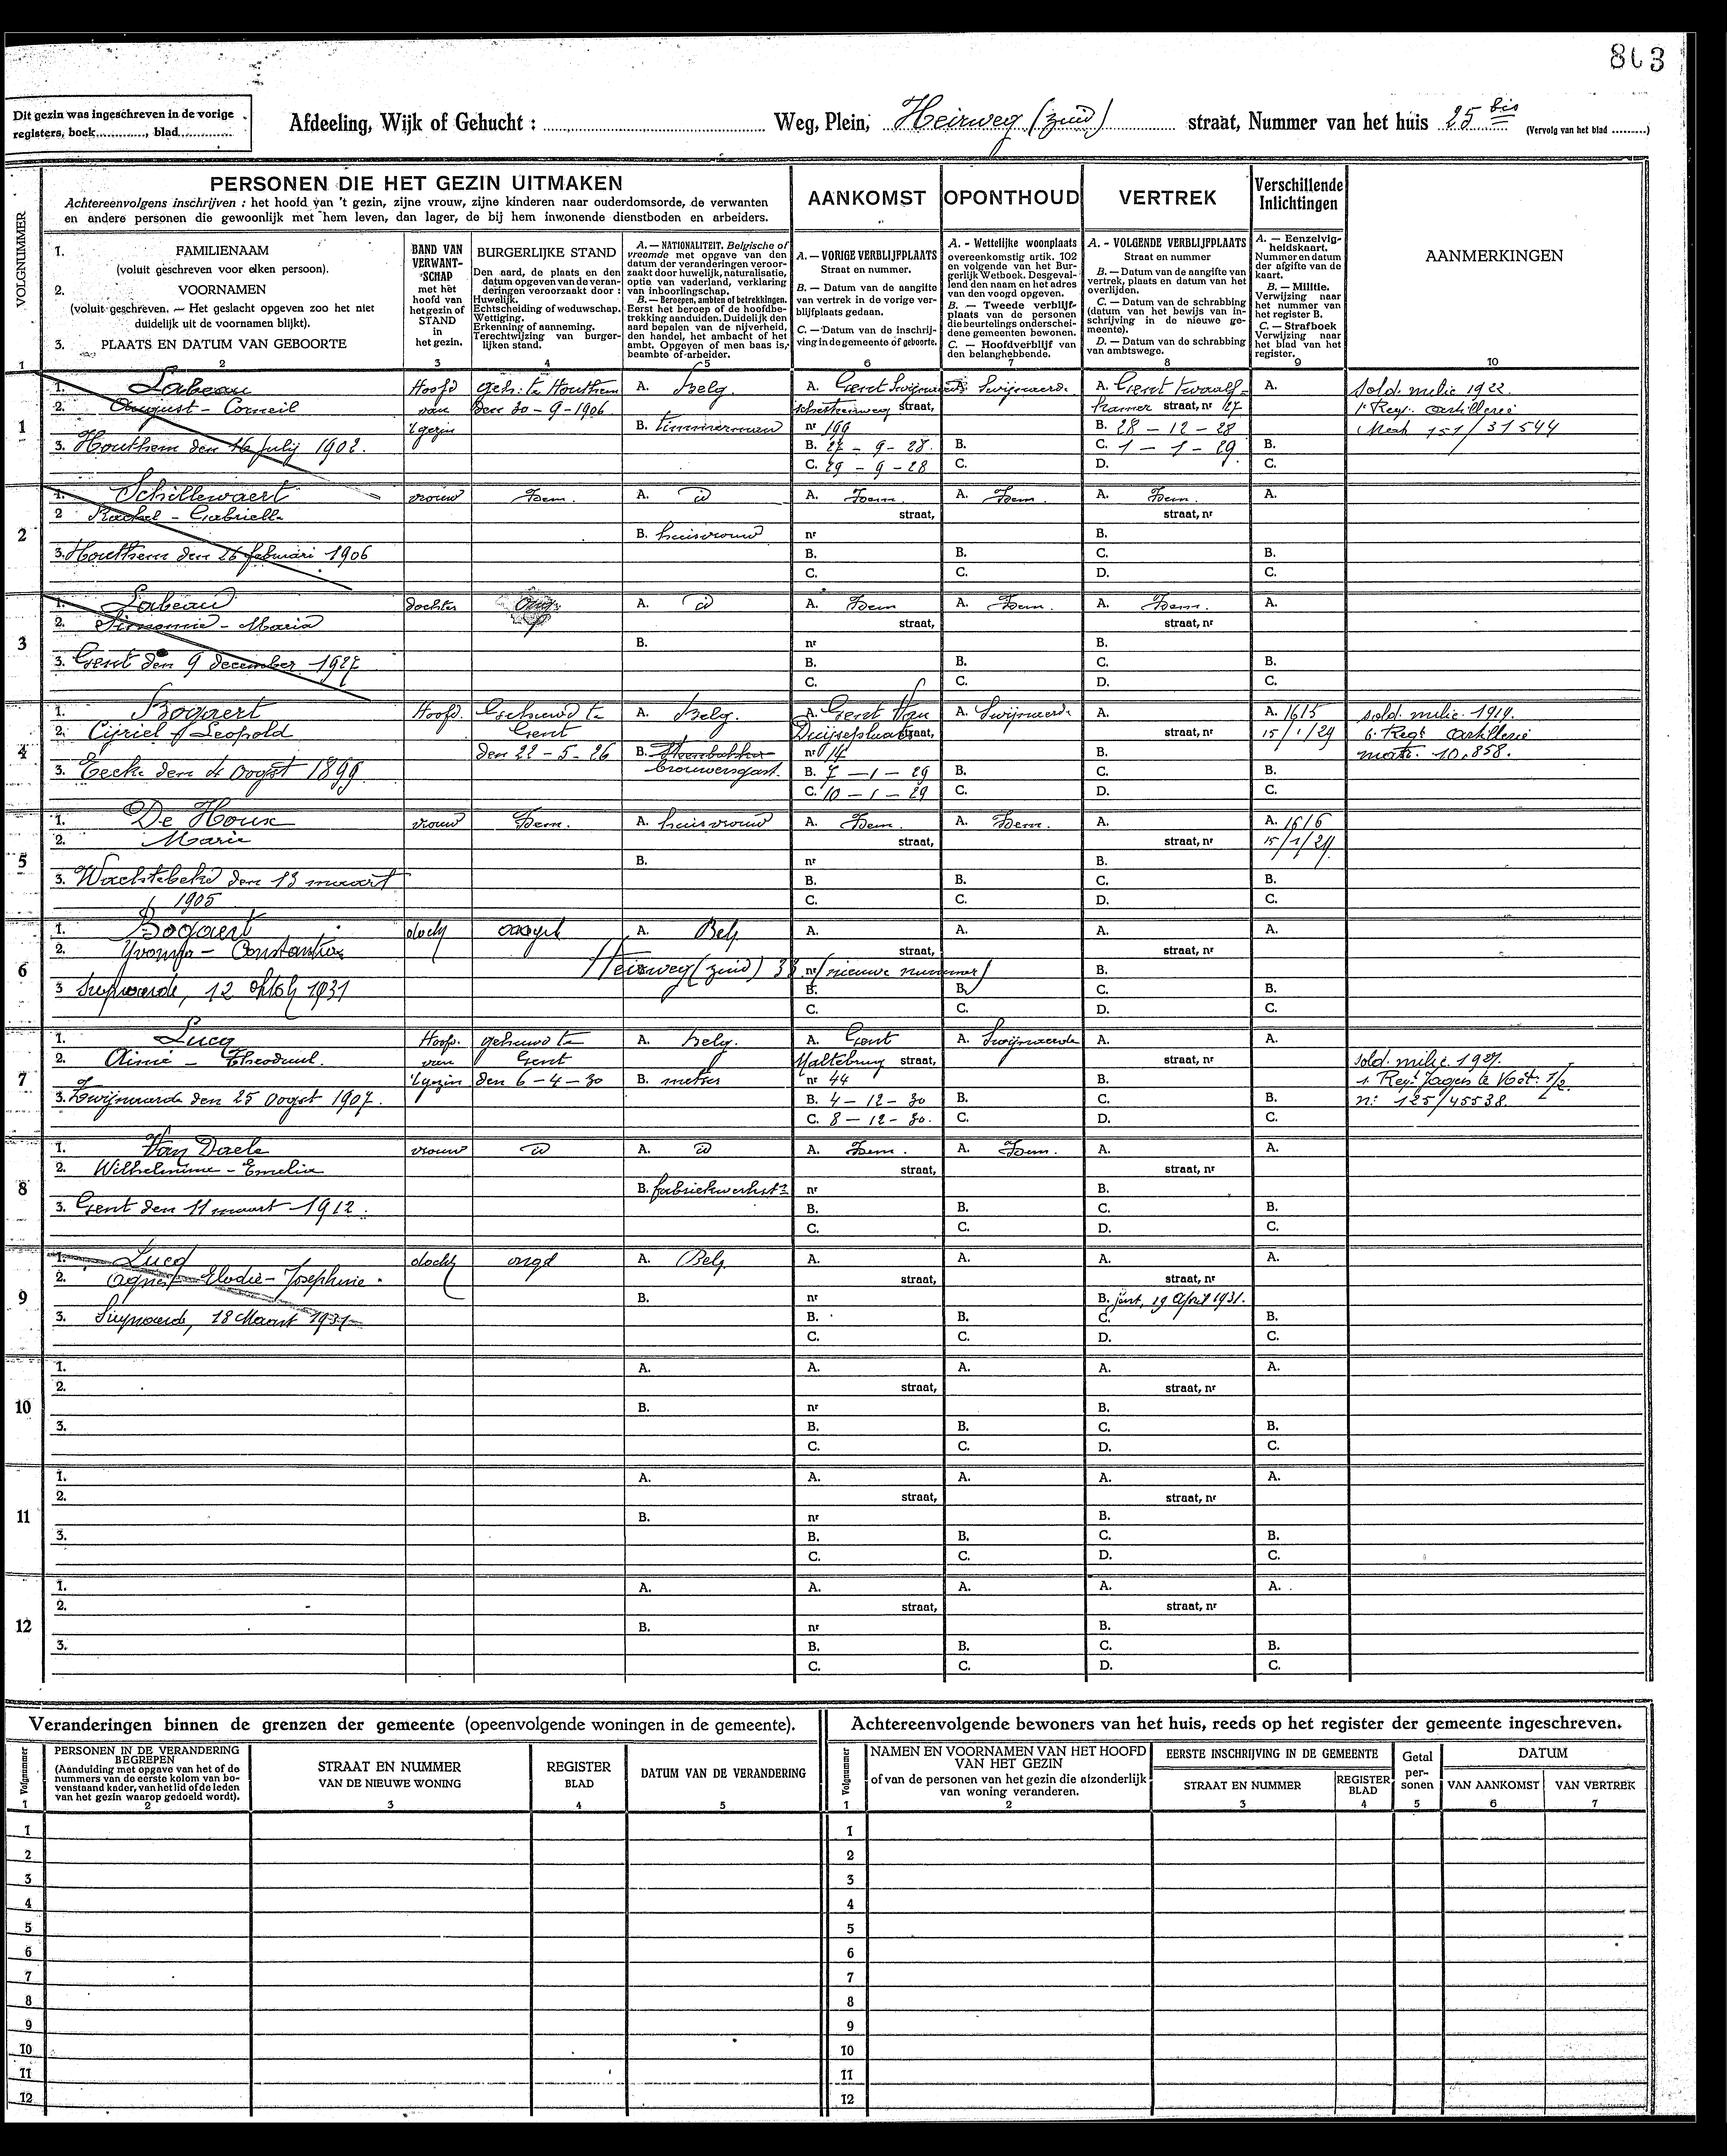 803
Dit gezin was ingeschreven in de vorige
registers, boek............, blad............
Afdeeling, Wijk of Gehucht : ............ Weg, Plein, Heirweg (zuid) straat, Nummer van het huis 25 bis (Vervolg van het blad ..........)
VOLGNUMMER
PERSONEN DIE HET GEZIN UITMAKEN
Achtereenvolgens inschrijven : het hoofd van 't gezin, zijne vrouw, zijne kinderen naar ouderdomsorde, de verwanten
en andere personen die gewoonlijk met hem leven, dan lager, de bij hem inwonende dienstboden en arbeiders.
AANKOMST
OPONTHOUD
VERTREK
Verschillende
Inlichtingen
1. FAMILIENAAM
(voluit geschreven voor elken persoon).
2. VOORNAMEN
(voluit geschreven. — Het geslacht opgeven zoo het niet
duidelijk uit de voornamen blijkt).
3. PLAATS EN DATUM VAN GEBOORTE
BAND VAN
VERWANT-
SCHAP
met hèt
hoofd van
het gezin of
STAND
in
het gezin.
BURGERLIJKE STAND
Den aard, de plaats en den
datum opgeven van de veran-
deringen veroorzaakt door :
Huwelijk.
Echtscheiding of weduwschap.
Wettiging.
Erkenning of anneming.
Terechtwijzing van burger-
lijken stand.
A. — NATIONALITEIT. Belgische of
vreemde met opgave van den
datum der veranderingen veroor-
zaakt door huwelijk, naturalisatie,
optie van vaderland, verklaring
van inboorlingschap.
B. — Beroepen, ambten of betrekkingen.
Eerst het beroep of de hoofdbe-
trekking aanduiden. Duidelijk den
aard bepalen van de nijverheid,
den handel, het ambacht of het
ambt. Opgeven of men baas is,
beambte of arbeider.
A. — VORIGE VERBLIJFPLAATS
Straat en nummer.
B. — Datum van de aangifte
van vertrek in de vorige ver-
blijfplaats gedaan.
C. — Datum van de inschrij-
ving in de gemeente of geboorte.
A. - Wettelijke woonplaats
overeenkomstig artik. 102
en volgende van het Bur-
gerlijk Wetboek. Desgeval-
lend den naam en het adres
van den voogd opgeven.
B. — Tweede verblijf-
plaats van de personen
die beurtelings onderschei-
dene gemeenten bewonen.
C. — Hoofdverblijf van
den belanghebbende.
A. - VOLGENDE VERBLIJFPLAATS
Straat en nummer
B. — Datum van de aangifte van
vertrek, plaats en datum van het
overlijden.
C. — Datum van de schrabbing
(datum van het bewijs van in-
schrijving in de nieuwe ge-
meente).
D. — Datum van de schrabbing
van ambtswege.
A. — Eenzelvig-
heidskaart.
Nummer en datum
der afgifte van de
kaart.
B. — Militie.
Verwijzing naar
het nummer van
het register B.
C. — Strafboek
Verwijzing naar
het blad van het
register.
AANMERKINGEN
1 2 3 4 5 6 7 8 9 10
1
1. Labeau Hoofd geh. te Houthem A. Belg. A. Gent A. Swijnaerde A. Gent Twaalf- A. Sold. milic 1922
2. August - Corneil van den 30-9-1906 straat, kamer straat, nr 27 1e Reg. artillerie
't gezin B. timmerman nr 199 B. 28-12-28 151/31544
3. Houthem den 16 July 1902. B. 27-9-28. B. C. 1-1-29 B.
C. 29-9-28 C. D. C.
2
1. Schillewaert vrouw Idem. A. id A. Idem. A. Idem. A. Idem. A.
2 Rachel - Gabriella straat, straat, nr
B. huisvrouw nr B.
3. Houthem den 26 februari 1906 B. B. C. B.
C. C. D. C.
3
1. Labeau dochter Ong. A. id A. Idem A. Idem. A. Idem. A.
2. Simonnie - Maria straat, straat, nr
B. nr B.
3. Gent den 9 december 1927 B. B. C. B.
C. C. D. C.
4
1. Bogaert Hoofd. Gehuwd te A. Belg. A. Gent Van A. Swijnaerde A. A. 1615 sold. milic. 1919.
2. Cyriel Leopold Gent Duijseplaats straat, straat, nr 15/1/29 6. Regt Artillerie
den 22-5-26 B. Steenbakker nr 14 B. matr. 10.858.
3. Eecke den 4 Oogst 1899 brouwersgast. B. 7-1-29 B. C. B.
C. 10-1-29 C. D. C.
5
1. De Houx vrouw Idem. A. huisvrouw A. Idem. A. Idem. A. A. 1616
2. Marie straat, straat, nr 15/1/29
B. nr B.
3. Wachtebeke den 13 maart B. B. C. B.
1905 C. C. D. C.
6
1. Bogaert docht A. Belg A. A. A. A.
2. Yvonne - Constantia straat, straat, nr
Heirweg (zuid) 38 nr (nieuwe nummer) B.
3 Swijnaerde, 12 Oktob 1931 B. B. C. B.
C. C. D. C.
7
1. Lucq Hoofd. gehuwd te A. Belg. A. Gent A. Swijnaerde A. A.
2. Aimé - Theoduul. van Gent Maltebrug straat, straat, nr sold. milic. 1927.
't gezin den 6-4-30 B. metser nr 44 B. 1. Regt Jagers te Voet. 1/2.
3. Zwijnaarde den 25 Oogst 1907. B. 4-12-30 B. C. B. n: 125/45538.
C. 8-12-30. C. D. C.
8
1. Van Daele vrouw id A. id A. Idem. A. Idem. A. A.
2. Wilhelmine - Emelia straat, straat, nr
B. fabriekwerkst. nr B.
3. Gent den 11 maart 1912. B. B. C. B.
C. C. D. C.
9
1. Lucq docht ongd A. Belg. A. A. A. A.
2. Agnes Elodie - Josephine straat, straat, nr
B. nr B. Gent, 19 April 1931.
3. Swijnaerde, 18 Maart 1931 B. B. C. B.
C. C. D. C.
10
1. A. A. A. A. A.
2. straat, straat, nr
B. nr B.
3. B. B. C. B.
C. C. D. C.
11
1. A. A. A. A. A.
2. straat, straat, nr
B. nr B.
3. B. B. C. B.
C. C. D. C.
12
1. A. A. A. A. A.
2. straat, straat, nr
B. nr B.
3. B. B. C. B.
C. C. D. C.
Veranderingen binnen de grenzen der gemeente (opeenvolgende woningen in de gemeente).
Volgnummer
PERSONEN IN DE VERANDERING
BEGREPEN
(Aanduiding met opgave van het of de
nummers van de eerste kolom van bo-
venstaand kader, van het lid of de leden
van het gezin waarop gedoeld wordt).
STRAAT EN NUMMER
VAN DE NIEUWE WONING
REGISTER
BLAD
DATUM VAN DE VERANDERING
1 2 3 4 5
1
2
3
4
5
6
7
8
9
10
11
12
Achtereenvolgende bewoners van het huis, reeds op het register der gemeente ingeschreven.
Volgnummer
NAMEN EN VOORNAMEN VAN HET HOOFD
VAN HET GEZIN
of van de personen van het gezin die afzonderlijk
van woning veranderen.
EERSTE INSCHRIJVING IN DE GEMEENTE
STRAAT EN NUMMER
REGISTER
BLAD
Getal
per-
sonen
DATUM
VAN AANKOMST
VAN VERTREK
1 2 3 4 5 6 7
1
2
3
4
5
6
7
8
9
10
11
12